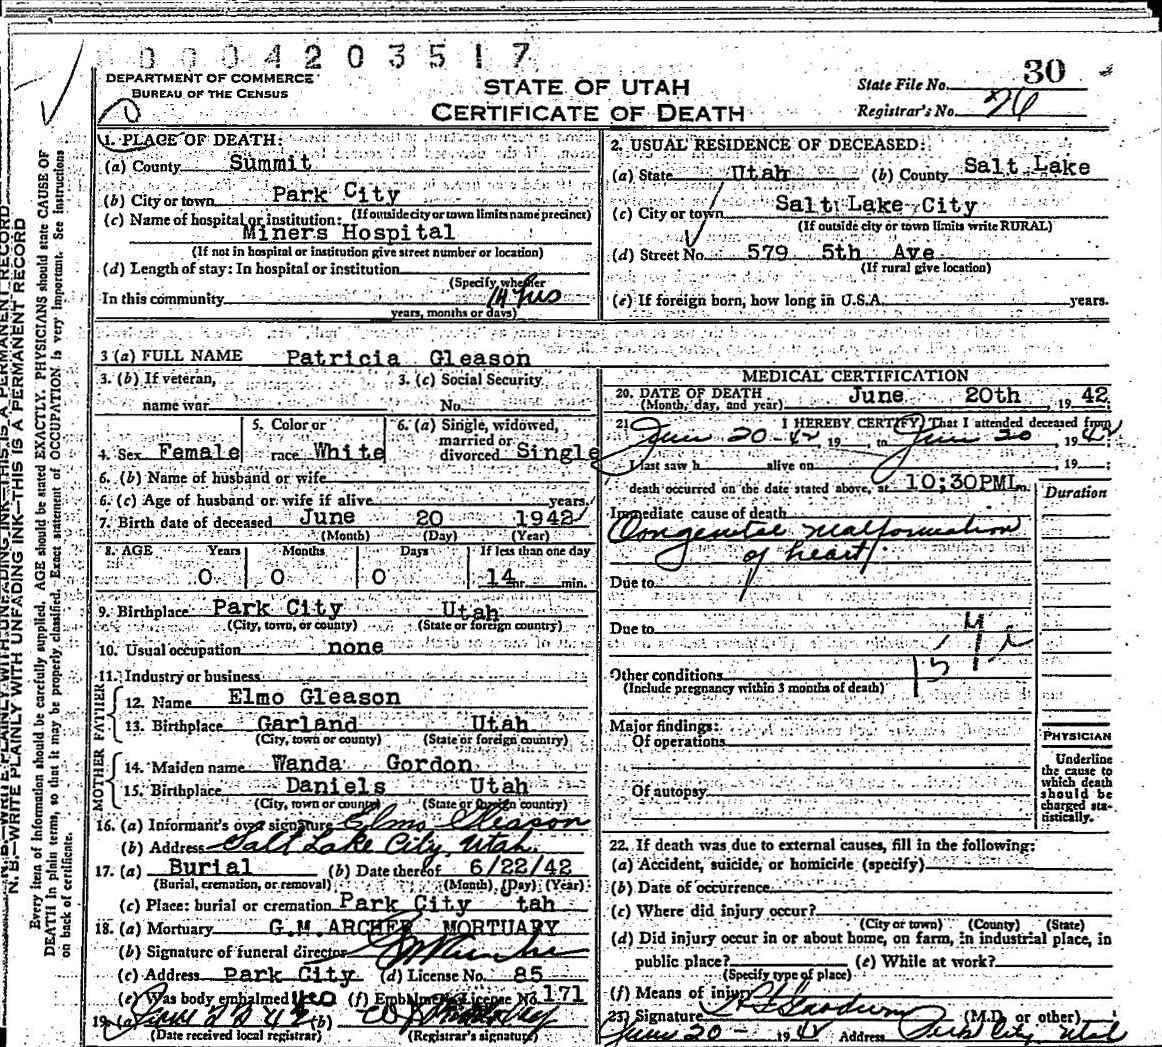 0004203517
DEPARTMENT OF COMMERCE
BUREAU OF THE CENSUS
STATE OF UTAH
CERTIFICATE OF DEATH
State File No. 30
Registrar's No. 26
1. PLACE OF DEATH:
(a) County Summit
(b) City or town Park City
(If outside city or town limits name precinct)
(c) Name of hospital or institution:
Miners Hospital
(If not in hospital or institution give street number or location)
(d) Length of stay: In hospital or institution
(Specify whether
In this community 14 hrs
years, months or days)
2. USUAL RESIDENCE OF DECEASED:
(a) State Utah (b) County Salt Lake
(c) City or town Salt Lake City
(If outside city or town limits write RURAL)
(d) Street No. 579 5th Ave
(If rural give location)
(e) If foreign born, how long in U.S.A. years.
3 (a) FULL NAME Patricia Gleason
3. (b) If veteran, name war
3. (c) Social Security No.
4. Sex Female
5. Color or race White
6. (a) Single, widowed, married or divorced Single
6. (b) Name of husband or wife
6. (c) Age of husband or wife if alive years.
7. Birth date of deceased June 20 1942
(Month) (Day) (Year)
8. AGE Years Months Days If less than one day
0 0 0 14 hr. min.
9. Birthplace Park City Utah
(City, town, or county) (State or foreign country)
10. Usual occupation none
11. Industry or business
FATHER
12. Name Elmo Gleason
13. Birthplace Garland Utah
(City, town or county) (State or foreign country)
MOTHER
14. Maiden name Wanda Gordon
15. Birthplace Daniels Utah
(City, town or county) (State or foreign country)
16. (a) Informant's own signature Elmo Gleason
(b) Address Salt Lake City, Utah.
17. (a) Burial (b) Date thereof 6/22/42
(Burial, cremation, or removal) (Month) (Day) (Year)
(c) Place: burial or cremation Park City tah
18. (a) Mortuary G.M. ARCHER MORTUARY
(b) Signature of funeral director
(c) Address Park City (d) License No. 85
(e) Was body embalmed no (f) Embalmer's License No. 171
19. (a) June 22 42 (b)
(Date received local registrar) (Registrar's signature)
MEDICAL CERTIFICATION
20. DATE OF DEATH June 20th, 1942
(Month, day, and year)
21. I HEREBY CERTIFY, That I attended deceased from
June 20-42 19 to June 20, 1942
I last saw h alive on , 19 ;
death occurred on the date stated above, at 10;30PM m.
Duration
Immediate cause of death
Congenital malformation
of heart
Due to
Due to
Other conditions
(Include pregnancy within 3 months of death)
Major findings:
Of operations
Of autopsy
PHYSICIAN
Underline
the cause to
which death
should be
charged sta-
tistically.
22. If death was due to external causes, fill in the following:
(a) Accident, suicide, or homicide (specify)
(b) Date of occurrence
(c) Where did injury occur?
(City or town) (County) (State)
(d) Did injury occur in or about home, on farm, in industrial place, in
public place? (e) While at work?
(Specify type of place)
(f) Means of injury
23. Signature (M.D. or other)
June 20- 1942 Address Park City, Utah
N. B.—WRITE PLAINLY WITH UNFADING INK—THIS IS A PERMANENT RECORD
Every item of information should be carefully supplied. AGE should be stated EXACTLY. PHYSICIANS should state CAUSE OF
DEATH in plain terms, so that it may be properly classified. Exact statement of OCCUPATION is very important. See instructions
on back of certificate.